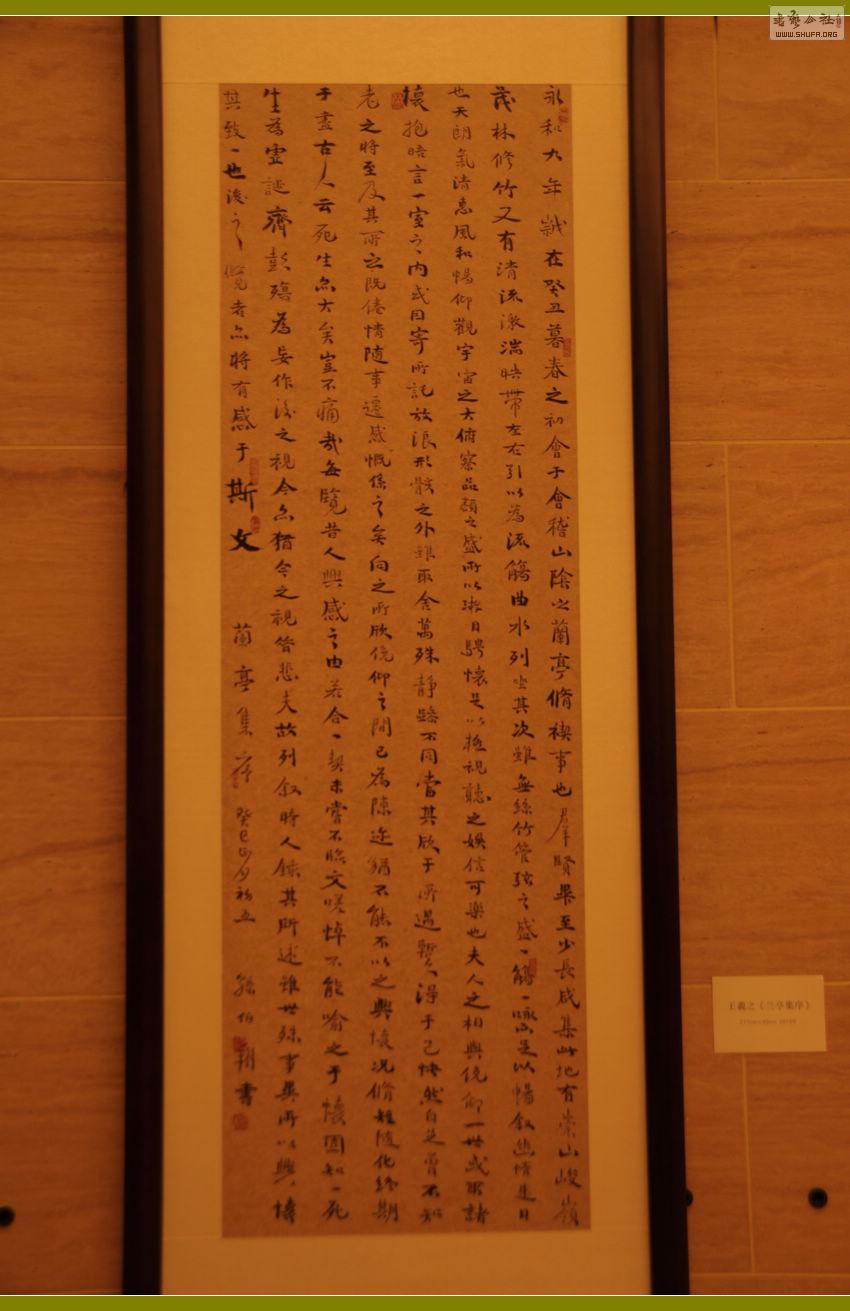 永和九年歲在癸丑暮春之初會于會稽山陰之蘭亭脩禊事也羣賢畢至少長咸集此地有崇山峻嶺
茂林修竹又有清流激湍映帶左右引以為流觴曲水列坐其次雖無絲竹管弦之盛一觴一詠亦足以暢叙幽情是日
也天朗氣清惠風和暢仰觀宇宙之大俯察品類之盛所以遊目騁懷足以極視聽之娛信可樂也夫人之相與俛仰一世或取諸
懷抱晤言一室之內或因寄所託放浪形骸之外雖取舍萬殊靜躁不同當其欣于所遇暫得于己快然自足曾不知
老之將至及其所之既倦情隨事遷感慨係之矣向之所欣俛仰之間已為陳迹猶不能不以之興懷況脩短隨化終期
于盡古人云死生亦大矣豈不痛哉每覽昔人興感之由若合一契未嘗不臨文嗟悼不能喻之于懷固知一死
生為虛誕齊彭殤為妄作後之視今亦猶今之視昔悲夫故列叙時人錄其所述雖世殊事異所以興懷
其致一也後之覽者亦將有感于斯文
蘭亭集序 癸巳 初五 孫伯翔書
王羲之《兰亭集序》
WWW.SHUFA.ORG